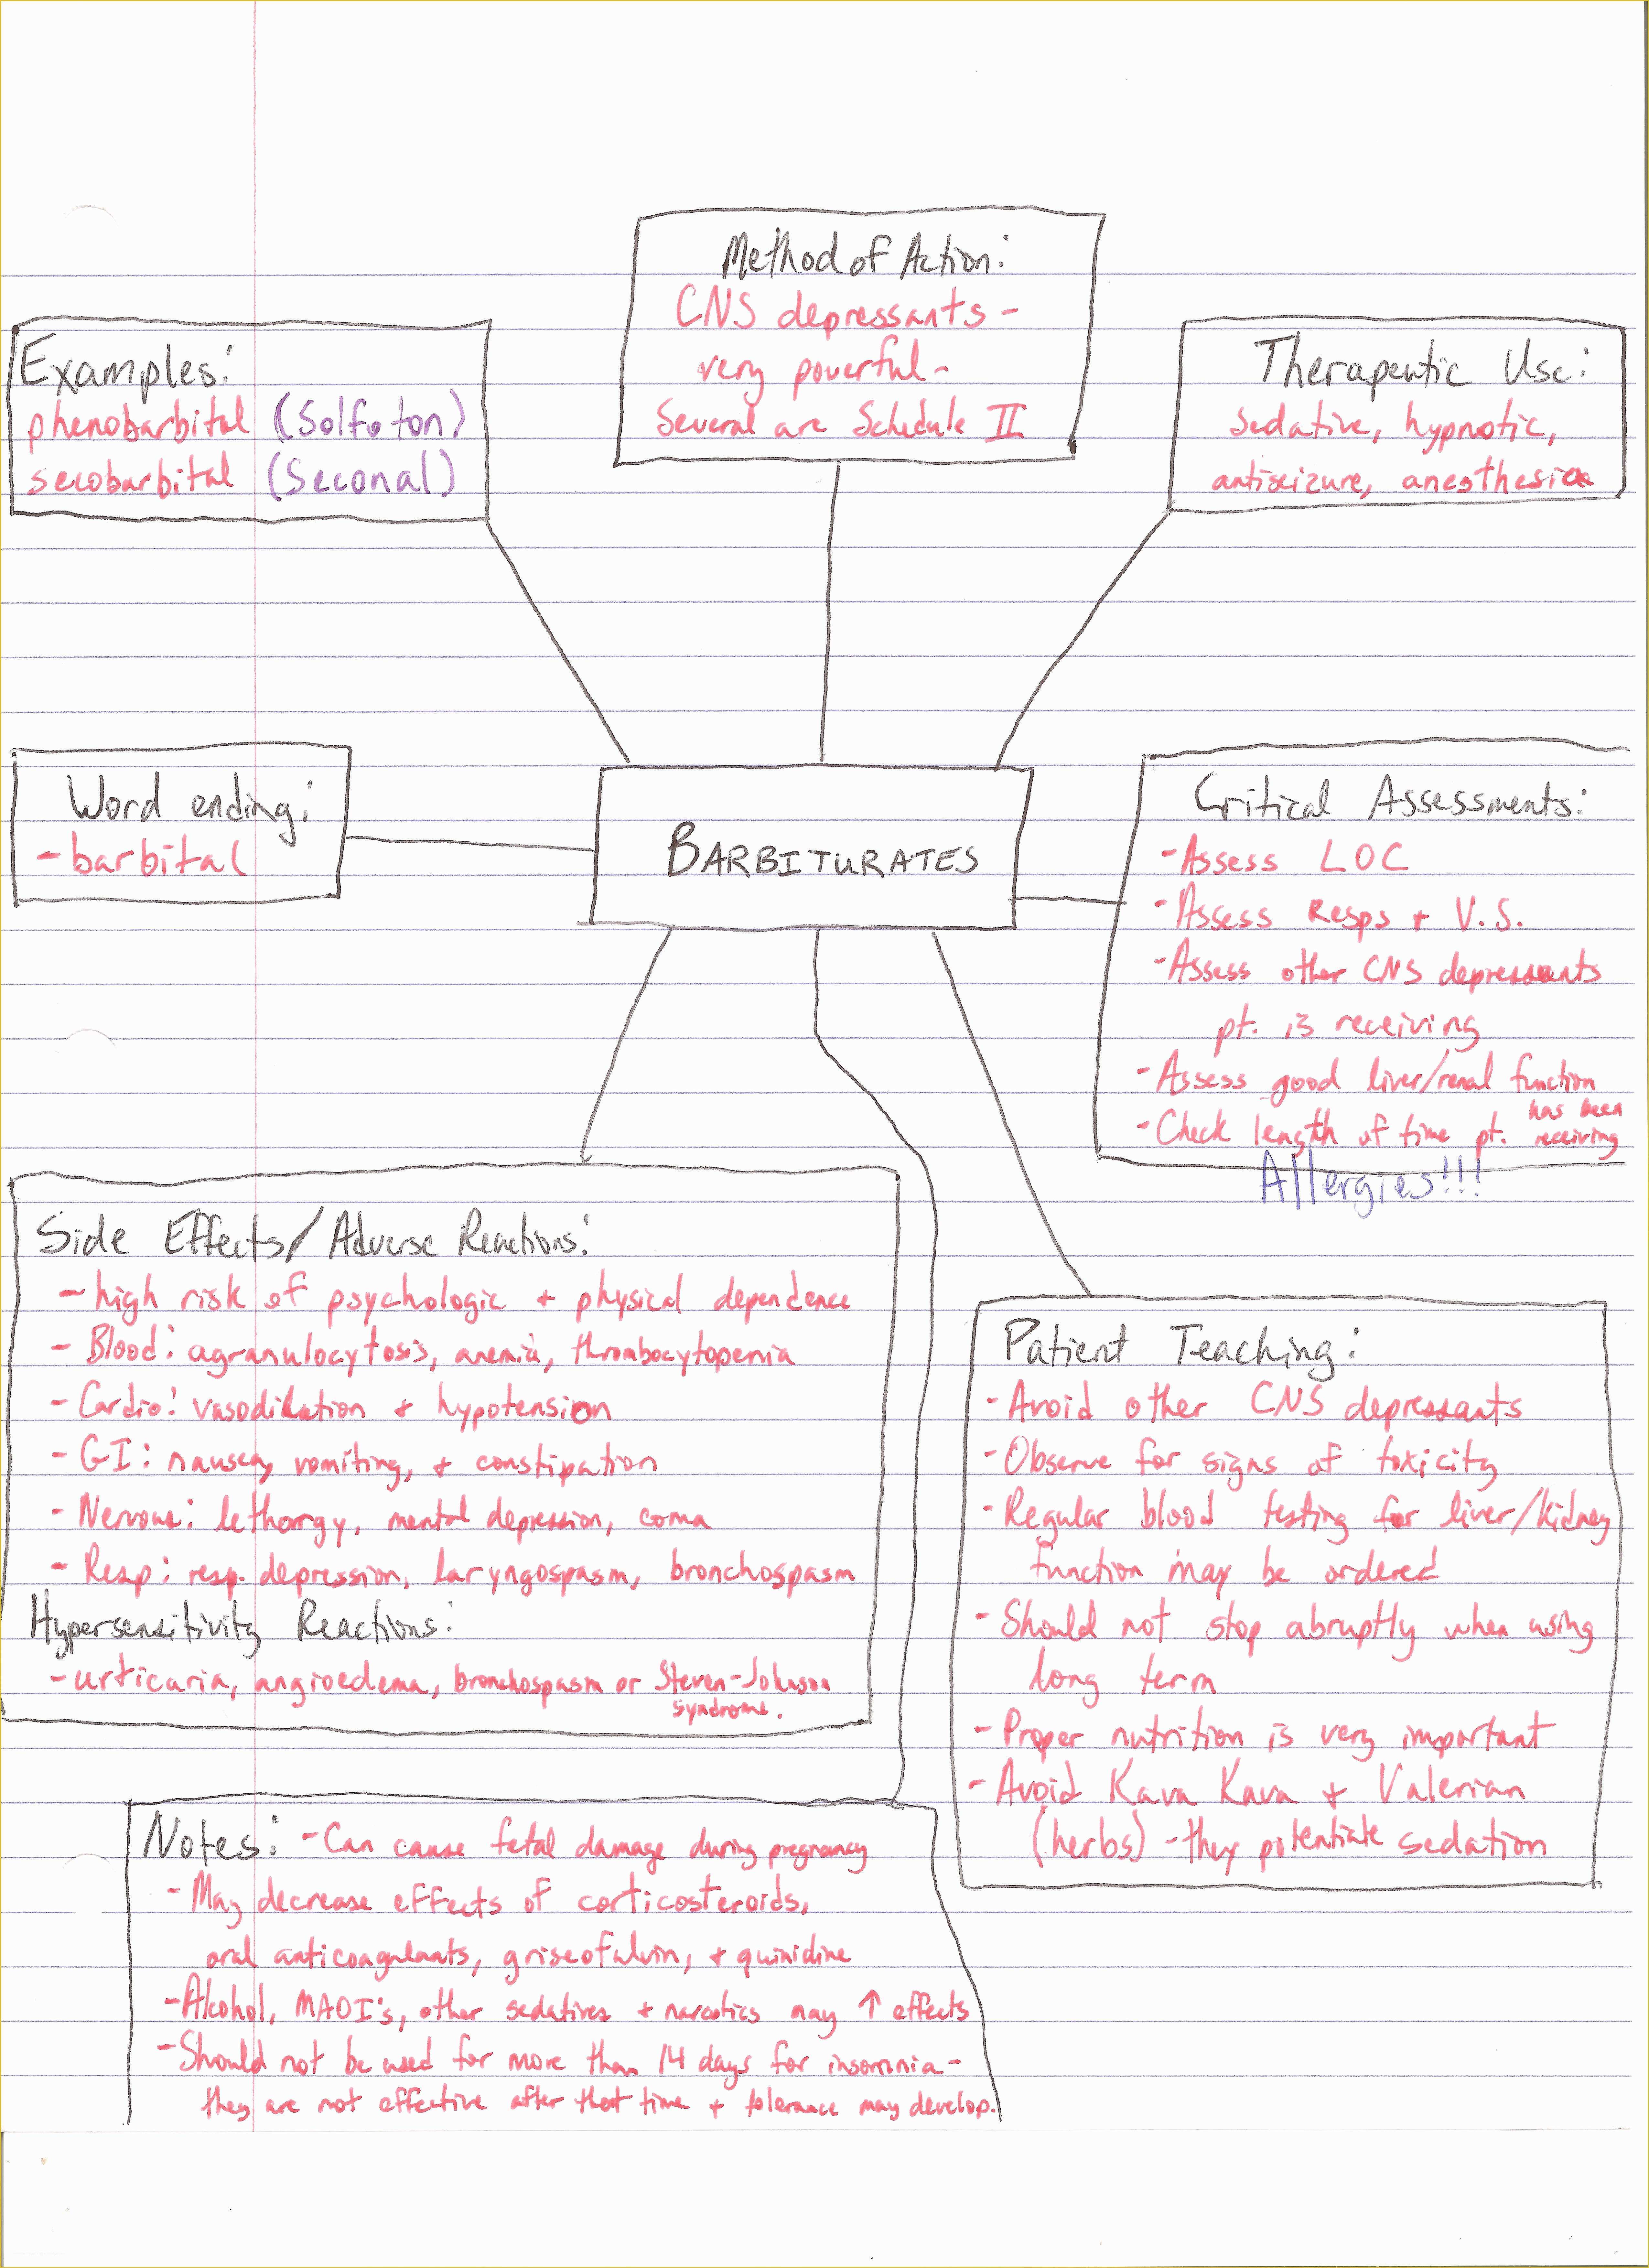 Method of Action:
CNS depressants -
very powerful -
Several are Schedule II
Examples:
phenobarbital (Solfoton)
secobarbital (Seconal)
Therapeutic Use:
sedative, hypnotic,
antiseizure, anesthesia
Word ending:
-barbital
BARBITURATES
Critical Assessments:
- Assess LOC
- Assess Resps + V.S.
- Assess other CNS depressants
pt. is receiving
- Assess good liver/renal function
- Check length of time pt. has been receiving
Allergies!!!
Side Effects/Adverse Reactions:
- high risk of psychologic + physical dependence
- Blood: agranulocytosis, anemia, thrombocytopenia
- Cardio: vasodilation + hypotension
- GI: nausea, vomiting, + constipation
- Nervous: lethargy, mental depression, coma
- Resp: resp. depression, laryngospasm, bronchospasm
Hypersensitivity Reactions:
- urticaria, angioedema, bronchospasm or Steven-Johnson
syndrome.
Patient Teaching:
- Avoid other CNS depressants
- Observe for signs of toxicity
- Regular blood testing for liver/kidney
function may be ordered
- Should not stop abruptly when using
long term
- Proper nutrition is very important
- Avoid Kava Kava + Valerian
(herbs) - they potentiate sedation
Notes: - Can cause fetal damage during pregnancy
- May decrease effects of corticosteroids,
oral anticoagulants, griseofulvin, + quinidine
- Alcohol, MAOI's, other sedatives + narcotics may ↑ effects
- Should not be used for more than 14 days for insomnia -
they are not effective after that time + tolerance may develop.